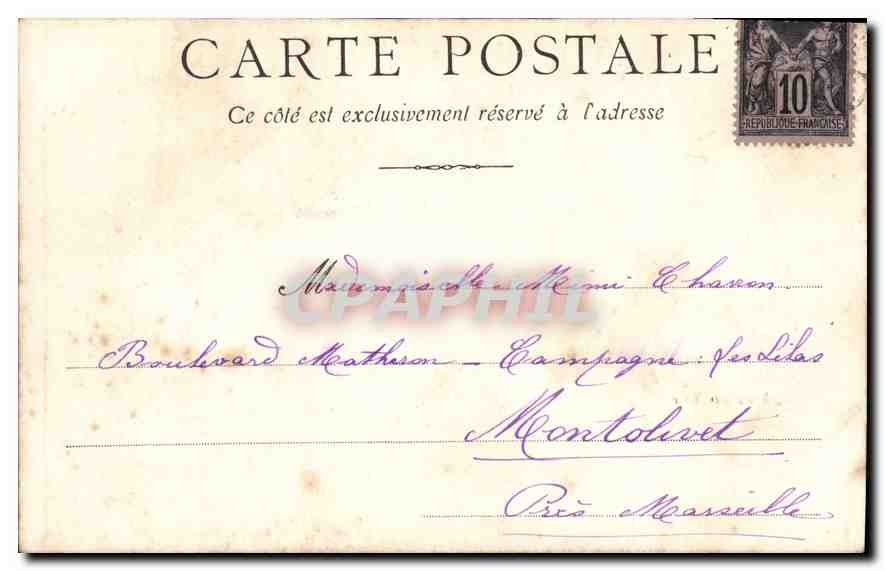 CARTE POSTALE
10
REPUBLIQUE FRANCAISE
Ce côté est exclusivement réservé à l'adresse
CPAPHIL
Mademoiselle Mimi Chavon
Boulevard Matheron – Campagne : Les Lilas
Montolivet
Près Marseille